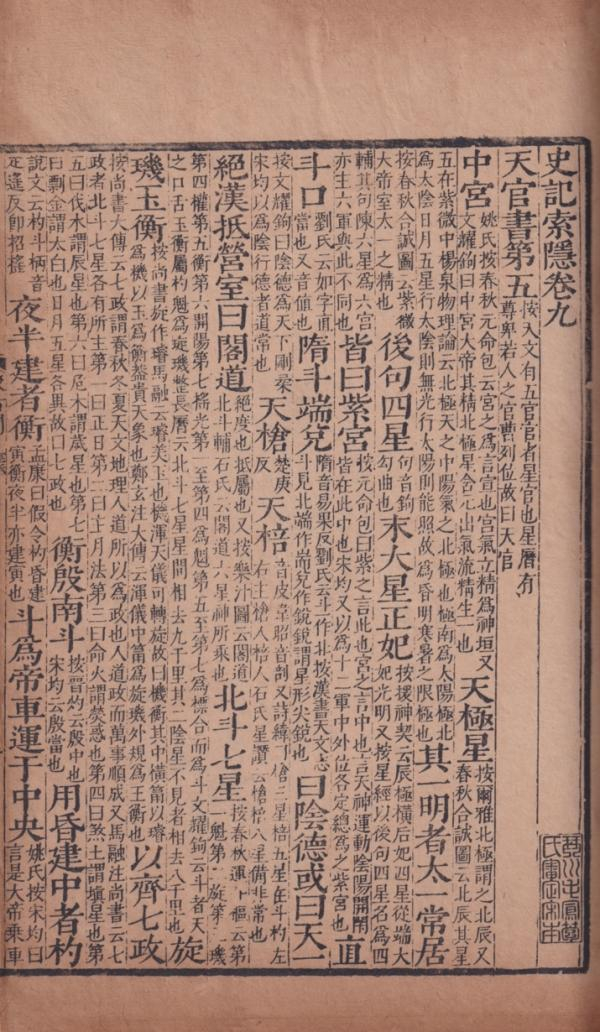 史記索隱卷九
天官書第五 按入文有五官官者星官也星曆有尊卑若人之官曹列位故曰天官
中宮 姚氏按春秋元命包云宮之為言宣也宮氣立精為神垣又文耀鉤曰中宮大帝其精北極星含元出氣流精生一也 天極星 按爾雅北極謂之北辰又春秋合誠圖云北辰其星
五在紫微中楊泉物理論云北極天之中陽氣之北極也極南為太陽極北為太陰日月五星行太陰則無光行太陽則能照故為昏明寒暑之限極也 其一明者太一常居
按春秋合誠圖云紫微大帝室太一之精也 後句四星 句音鉤勾曲也 末大星正妃 按援神契云辰極橫后妃四星從端大妃光明又按星經以後句四星名為四
輔其句陳六星為六宮亦主六軍與此不同也 皆曰紫宮 按元命包曰紫之言此也宮之言中也言天神運動陰陽開閉皆在此中也宋均又以為十二軍中外位各定總為之紫宮也 直
斗口 劉氏云如字直當也又音值也 隋斗端兌 隋音易果反劉氏云斗一作北按漢書天文志斗見北端作耑兌作銳銳謂星形尖銳也 曰陰德或曰天一
按文耀鉤曰陰德為天下剛綦宋均以為陰行德者道常也 天槍 楚庚反 天棓 音皮韋昭音剖又詩緯曰槍三星棓五星在斗杓左右主槍人棓人石氏星讚云槍棓八星備非常也
絕漢抵營室曰閣道 絕度也抵屬也又按樂汁圖云閣道北斗輔石氏云閣道六星神所乘也 北斗七星 按春秋運斗樞云第一魁第二旋第三璣
第四權第五衡第六開陽第七搖光第一至第四為魁第五至第七為標合而為斗文耀鉤云斗者天之口舌玉衡屬杓魁為琁璣徐整長曆云北斗七星星間相去九千里其二陰星不見者相去八千里也 旋
璣玉衡 按尚書旋作璿馬融云璿美玉也機渾天儀可轉旋故曰機衡其中橫筩以璿為機以玉為衡蓋貴天象也鄭玄注大傳云渾儀中筩為旋璣外規為王衡也 以齊七政
按尚書大傳云七政謂春秋冬夏天文地理人道所以為政也人道政而萬事順成又馬融注尚書云七政者北斗七星各有所主第一曰正日第二曰主月法第三曰命火謂熒惑也第四曰煞土謂填星也第
五曰伐水謂辰星也第六曰危木謂歲星也第七曰剽金謂太白也日月五星各異故曰七政也 衡殷南斗 按晉灼云殷中也宋均云殷當也 用昏建中者杓
說文云杓斗柄音疋遙反即招搖 夜半建者衡 孟康曰假令杓昏建寅衡夜半亦建寅也 斗為帝車運于中央 姚氏按宋均曰言是大帝乘車